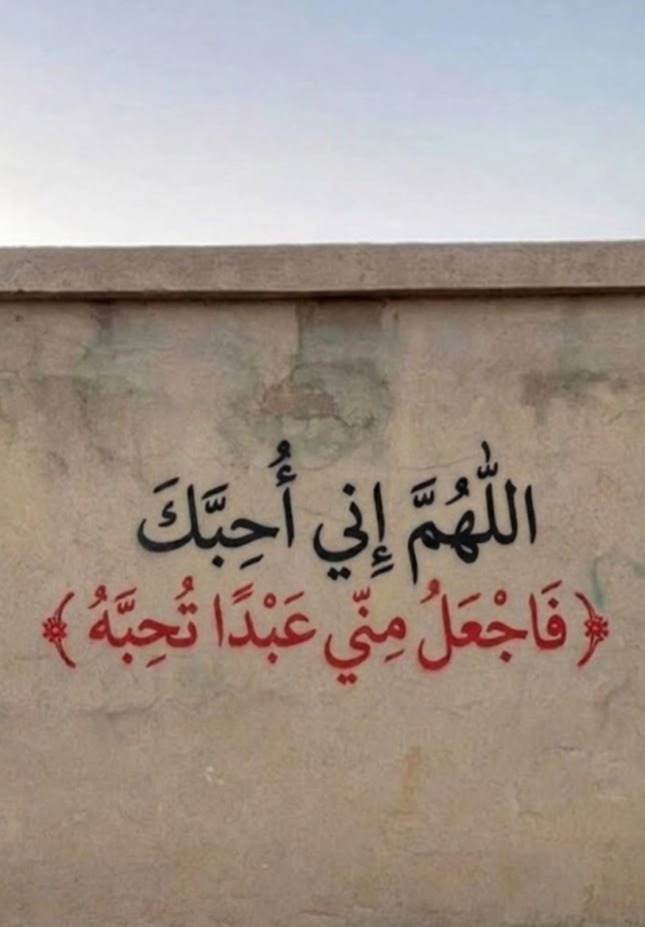 اللّٰهُمَّ إِني أُحِبَّكَ
﴿فَاجْعَلُ مِنّي عَبْدًا تُحِبَّهُ﴾